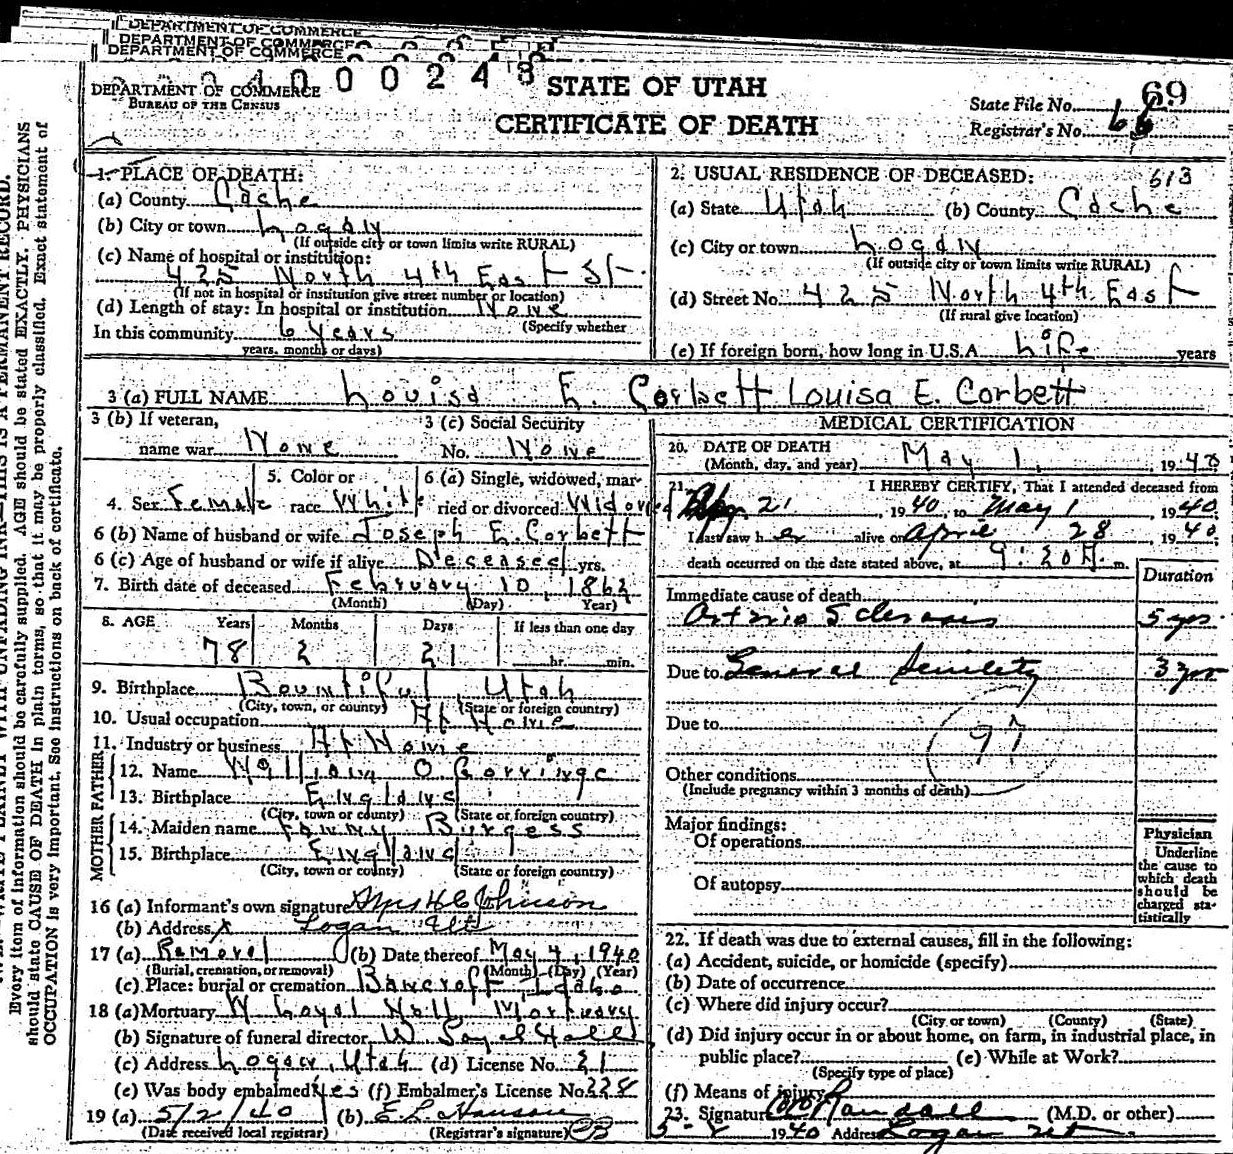 DEPARTMENT OF COMMERCE
DEPARTMENT OF COMMERCE
DEPARTMENT OF COMMERCE
0 0 0 2 4 8
DEPARTMENT OF COMMERCE
BUREAU OF THE CENSUS
STATE OF UTAH
CERTIFICATE OF DEATH
State File No. 69
Registrar's No.
Every item of information should be carefully supplied. AGE should be stated EXACTLY. PHYSICIANS
should state CAUSE OF DEATH in plain terms, so that it may be properly classified. Exact statement of
OCCUPATION is very important. See instructions on back of certificate.
1. PLACE OF DEATH:
(a) County Cache
(b) City or town Logan
(If outside city or town limits write RURAL)
(c) Name of hospital or institution:
425 North 4th East St.
(If not in hospital or institution give street number or location)
(d) Length of stay: In hospital or institution None
(Specify whether
In this community 6 years
years, months or days)
2. USUAL RESIDENCE OF DECEASED: 613
(a) State Utah (b) County Cache
(c) City or town Logan
(If outside city or town limits write RURAL)
(d) Street No. 425 North 4th East
(If rural give location)
(e) If foreign born, how long in U.S.A. Life years
3 (a) FULL NAME Louisa E. Corbett Louisa E. Corbett
3 (b) If veteran,
name war None
3 (c) Social Security
No. None
4. Sex Female
5. Color or
race White
6 (a) Single, widowed, mar-
ried or divorced Widowed
6 (b) Name of husband or wife Joseph E. Corbett
6 (c) Age of husband or wife if alive Deceased yrs.
7. Birth date of deceased February 10, 1862
(Month) (Day) Year)
8. AGE Years Months Days If less than one day
78 2 21 hr. min.
9. Birthplace Bountiful, Utah
(City, town, or county) (State or foreign country)
10. Usual occupation At Home
11. Industry or business At Home
FATHER
12. Name William O Gorringe
13. Birthplace England
(City, town or county) (State or foreign country)
MOTHER
14. Maiden name Fanny Burgess
15. Birthplace England
(City, town or county) (State or foreign country)
16 (a) Informant's own signature Mrs H C Johnson
(b) Address Logan Ut
17 (a) Removal (b) Date thereof May 4, 1940
(Burial, cremation, or removal) (Month) (Day) (Year)
(c) Place: burial or cremation Bancroft Idaho
18 (a) Mortuary W Loyal Hall Mortuary
(b) Signature of funeral director W. Loyal Hall
(c) Address Logan, Utah (d) License No. 21
(e) Was body embalmed Yes (f) Embalmer's License No. 228
19 (a) 5/2/40 (b) E.L. Hanson
(Date received local registrar) (Registrar's signature)
MEDICAL CERTIFICATION
20. DATE OF DEATH
(Month, day, and year) May 1, 1940
21. I HEREBY CERTIFY, That I attended deceased from
Apr 21, 1940, to May 1 1940.
I last saw her alive on April 28, 1940
death occurred on the date stated above, at 9:20 A. m.
Duration
Immediate cause of death
Arterio Sclerosis 5 yrs.
Due to General Senility 3 yrs
Due to 97
Other conditions
(Include pregnancy within 3 months of death)
Major findings:
Of operations
Of autopsy
Physician
Underline
the cause to
which death
should be
charged sta-
tistically
22. If death was due to external causes, fill in the following:
(a) Accident, suicide, or homicide (specify)
(b) Date of occurrence
(c) Where did injury occur?
(City or town) (County) (State)
(d) Did injury occur in or about home, on farm, in industrial place, in
public place? (e) While at Work?
(Specify type of place)
(f) Means of injury
23. Signature Randall (M.D. or other)
1940 Address Logan Ut